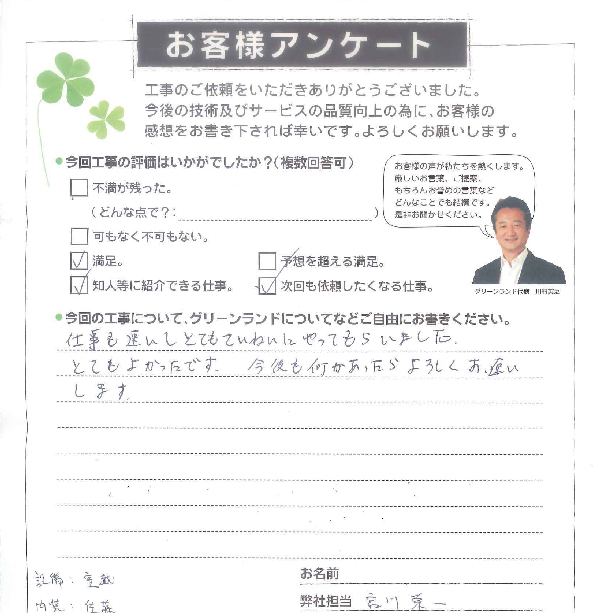 お客様アンケート
工事のご依頼をいただきありがとうございました。
今後の技術及びサービスの品質向上の為に、お客様の
感想をお書き下されば幸いです。よろしくお願いします。
●今回工事の評価はいかがでしたか?(複数回答可)
お客様の声が私たちを熱くします。
厳しいお言葉、ご提案、
もちろんお誉めの言葉など
どんなことでも結構です。
是非お聞かせください。
不満が残った。
(どんな点で?: )
可もなく不可もない。
満足。
予想を超える満足。
知人等に紹介できる仕事。
次回も依頼したくなる仕事。
グリーンランド代表
●今回の工事について、グリーンランドについてなどご自由にお書きください。
仕事も速いしとてもていねいにやってもらいました。
とてもよかったです。 今後も何かあったらよろしくお願い
します。
お名前
設備:
弊社担当 宮川
内装: 佐藤